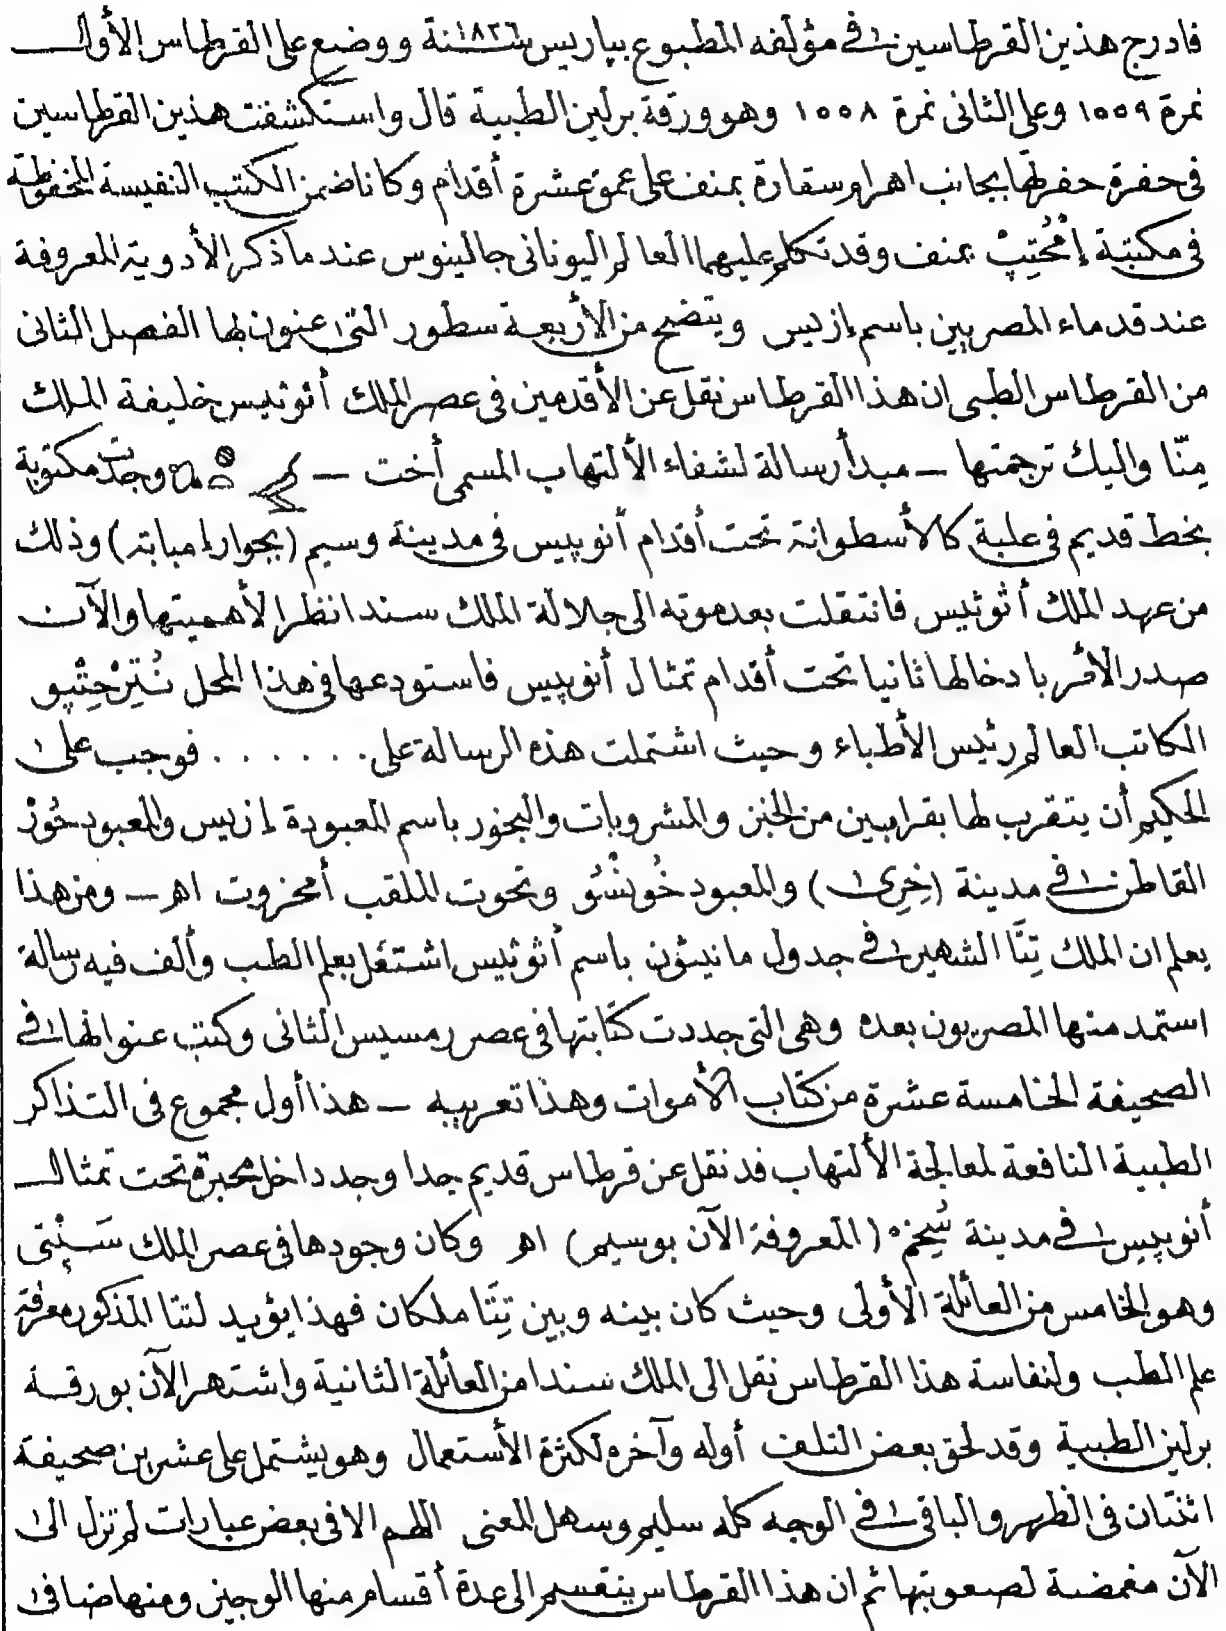 فادرج هذين القرطاسين فى مؤلفه المطبوع بباريس سنة ١٨٢٦ ووضع على القرطاس الأول
نمرة ١٥٥٩ وعلى الثانى نمرة ١٥٥٨ وهو ورقة برلين الطبية قال واستكشفت هذين القرطاسين
فى حفرة حفرتها بجانب اهرام سقارة بمنف على عمق عشرة أقدام وكانا ضمن الكتب النفيسة المحفوظة
فى مكتبة إمْحُتِپْ بمنف وقد تكلم عليهما العالم اليونانى جالينوس عند ما ذكر الأدوية المعروفة
عند قدماء المصريين باسم إزيس ويتضح من الأربعة سطور التى عنون لها الفصل الثانى
من القرطاس الطبى ان هذا القرطاس نقل عن الأقدمين فى عصر الملك أثوثيس خليفة الملك
مِنّا واليك ترجمتها ــ مبدأ رسالة لشفاء الألتهاب المسمى أخت ــ وجدت مكتوبة
بخط قديم فى علبة كالأسطوانة تحت أقدام أنوبيس فى مدينة وسيم (بجوار إمبابة) وذلك
من عهد الملك أثوثيس فانتقلت بعد موته الى جلالة الملك سندا نظرا لأهميتها والآن
صدر الأمر بادخالها ثانيا تحت أقدام تمثال أنوبيس فاستودعها فى هذا المحل نُتِرْحِتْپو
الكاتب العالم رئيس الأطباء وحيث اشتملت هذه الرسالة على . . . . . . فوجب على
الحكيم أن يتقرب لها بقرابين من الخبز والمشروبات والبخور باسم المعبودة إزيس والمعبود حُوْر
القاطن فى مدينة (خِرِى) والمعبود خُونْسُو وتحوت الملقب أمخروت اهـ ــ ومن هذا
يعلم ان الملك تِتَّا الشهير فى جدول مانيثون باسم أثوثيس اشتغل بعلم الطب وألف فيه رسالة
استمد منها المصريون بعده وهى التى جددت كتابتها فى عصر رمسيس الثانى وكتب عنوانها فى
الصحيفة الخامسة عشرة من كتاب الأموات وهذا تعريبه ــ هذا أول مجموع فى التذاكر
الطبية النافعة لمعالجة الألتهاب قد نقل عن قرطاس قديم جدا وجد داخل محبرة تحت تمثال
أنوبيس فى مدينة سُيخِمْ (المعروفة الآن بوسيم) اهـ وكان وجودها فى عصر الملك سَپْتى
وهو الخامس من العائلة الأولى وحيث كان بينه وبين تِتَا ملكان فهذا يؤيد لتتا المذكور معرفة
علم الطب ولنفاسة هذا القرطاس نقل الى الملك سندا من العائلة الثانية واشتهر الآن بورقة
برلين الطبية وقد لحق بعض التلف أوله وآخره لكثرة الأستعمال وهو يشتمل على عشرين صحيفة
اثنتان فى الظهر والباقى فى الوجه كله سليم وسهل المعنى اللهم الا فى بعض عبارات لم تزل الى
الآن مغمضة لصعوبتها ثم ان هذا القرطاس ينقسم الى عدة أقسام منها الوجيز ومنها ضافى